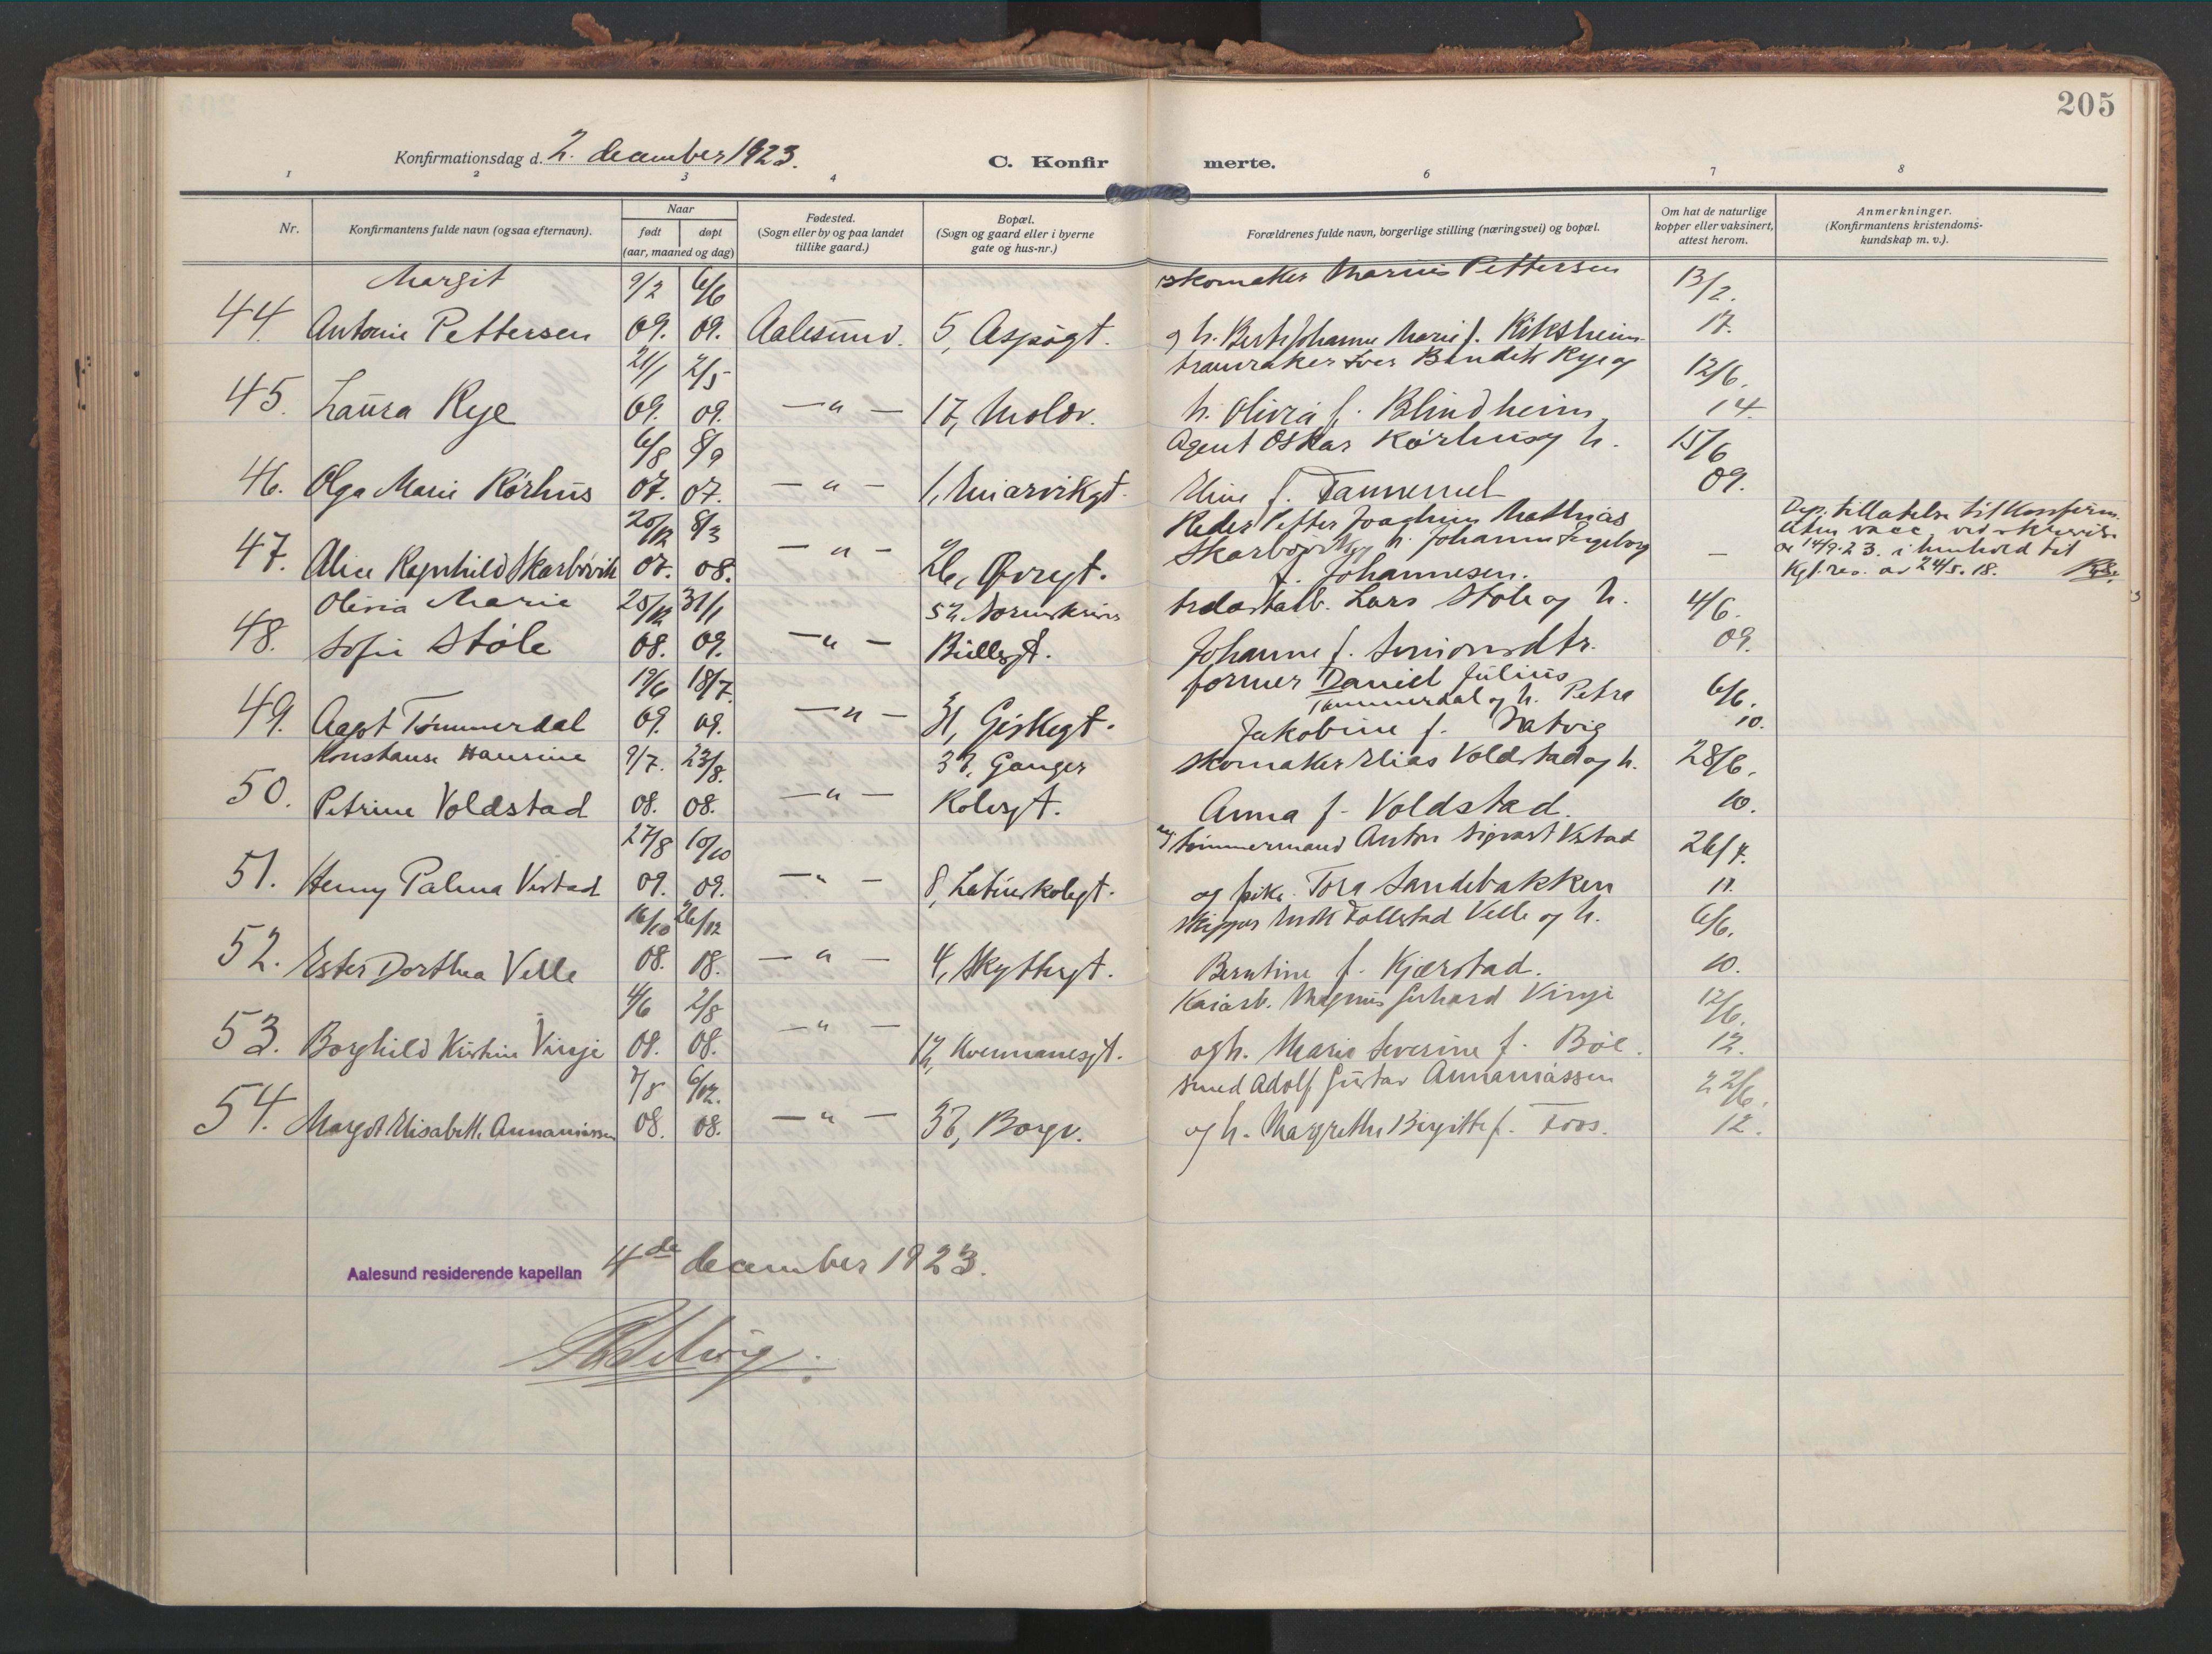 205
Konfirmationsdag d. 2. december 1923.
C. Konfirmerte.
1 2 3 4 6 7 8
Nr.
Konfirmantens fulde navn (ogsaa efternavn).
Naar
født døpt
(aar, maaned og dag)
Fødested.
(Sogn eller by og paa landet
tillike gaard.)
Bopæl.
(Sogn og gaard eller i byerne
gate og hus-nr.)
Forældrenes fulde navn, borgerlige stilling (næringsvei) og bopæl.
Om hat de naturlige
kopper eller vaksinert,
attest herom.
Anmerkninger.
(Konfirmantens kristendoms-
kundskap m. v.).
Margit 9/2 6/6 skomaker Marius Pettersen 13/2.
44. Antonie Pettersen 09. 09. Aalesund. 5, Aspøgt. og h. Johanne Marie f. Kiksheim 17.
21/1 2/5 Iver Bendik Rye og 12/6.
45. Laura Rye 09. 09. — " — 17, Molov. h. Olivia f. Blindheim 14.
6/8 8/9 Agent Oskar Kørhus og h. 15/6
46. Olga Marie Kørhus 07. 07. — " — 1, f. 09.
20/12 8/3 Reder Petter Joachim Mathias Dep. tillatelse til Konfirm.
47. Alice Ragnhild Skarbøvik 07. 08. — " — 26, Øvregt. Skarbøvik og h. Johanne Ingeborg — uten vacc. ved skrivelse
f. Johannesen. av 14/9.23. i henhold til
Kgl. res. av 24/5.18.
Olivia Marie 25/12 31/1 52 Lars Støle og h. 4/6.
48. Sofie Støle 08. 09. — " — Bullsgt. Johanne f. Simonsdtr. 09.
19/6 18/7. former Daniel Julius 6/6.
49. Aagot Tømmerdal 09. 09. — " — 31, Giskegt. Tømmerdal og h. Petra
Jakobine f. Hatvig 10.
Konstanse Hansine 9/7. 23/8. 33, Ganger skomaker Elias Voldstad og h. 28/6.
50. Petrine Voldstad 08. 08. — " — Rolvsgt. Anna f. Voldstad. 10.
27/8 10/10 tømmermand Anton Sigvart Vestad 26/4.
51. Henny Palma Vestad 09. 09. — " — 8, Latinskolegt. og pike Tora Sandebakken 11.
16/10 26/12 skipper Follestad Velle og h. 6/6.
52. Ester Dorthea Velle 08. 08. — " — 4, Skyttergt. Berntine f. Kjærstad. 10.
4/6 2/8 Kaiarb. Magnus Gerhard Vinje 12/6.
53. Borghild Kristine Vinje 08. 08. — " — 12, og h. Marie Severine f. Bøe. 12.
7/8 6/12. smed Adolf Gustav Annaniassen 22/6.
54. Margot Elisabeth Annaniassen 08. 08. — " — 38, Borgv. og h. Margrethe Birgitte f. Foos. 12.
Aalesund residerende kapellan 4de december 1923.